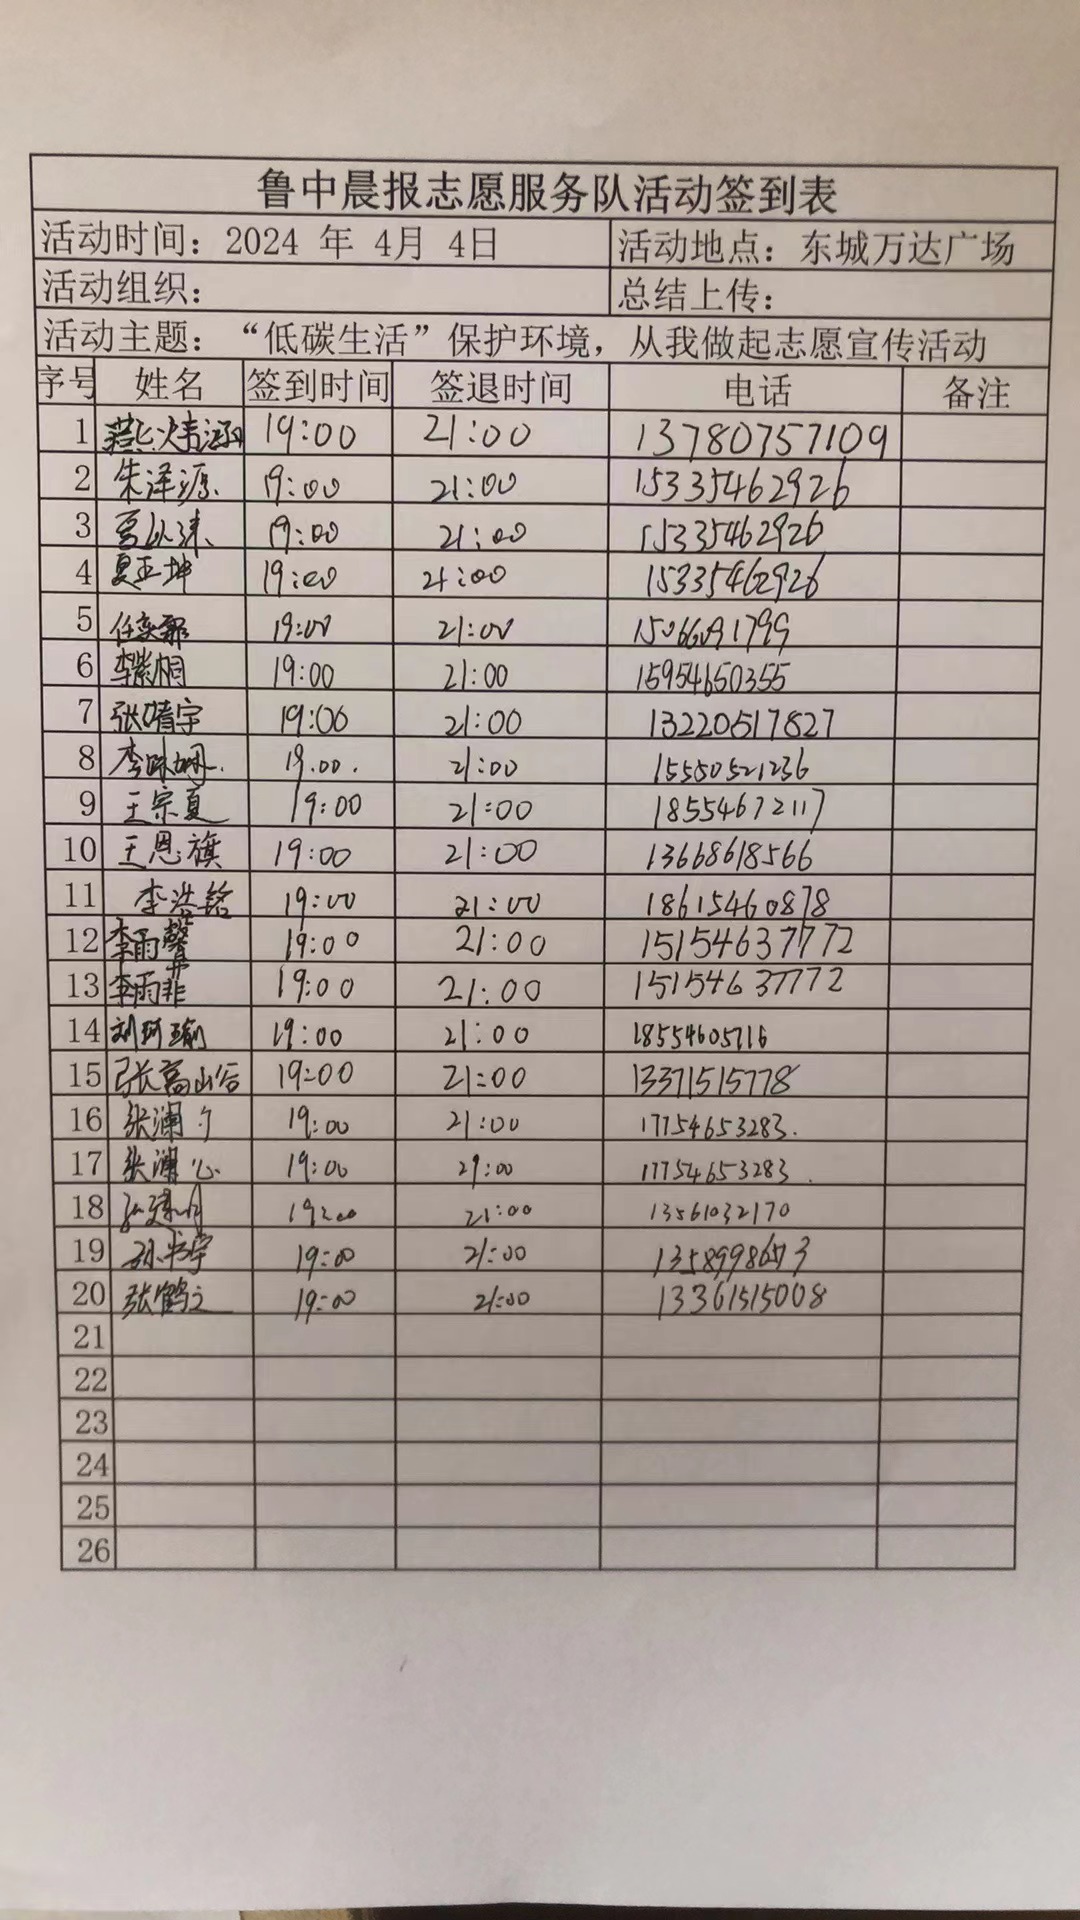 鲁中晨报志愿服务队活动签到表
活动时间：2024 年 4月 4日 活动地点：东城万达广场
活动组织： 总结上传：
活动主题：“低碳生活”保护环境，从我做起志愿宣传活动
序号 姓名 签到时间 签退时间 电话 备注
1 19:00 21:00 13780757109
2 朱泽源 19:00 21:00 15335462926
3 19:00 21:00 15335462926
4 夏玉坤 19:00 21:00 15335462926
5 19:00 21:00
6 李紫桐 19:00 21:00 15954650355
7 张晴宇 19:00 21:00 13220517827
8 19.00. 21:00 15550521236
9 王宗夏 19:00 21:00 18554672117
10 王恩旗 19:00 21:00 13668618566
11 李浩铭 19:00 21:00 18615460878
12 李雨馨 19:00 21:00 15154637772
13 李雨菲 19:00 21:00 15154637772
14 刘珂瑜 19:00 21:00 18554605716
15 19:00 21:00 13371515778
16 张澜夕 19:00 21:00 17754653283.
17 张澜心 19:00 21:00 17754653283.
18 19:00 21:00 13561032170
19 孙书宇 19:00 21:00
20 张鹤立 19:00 21:00 13361515008
21
22
23
24
25
26